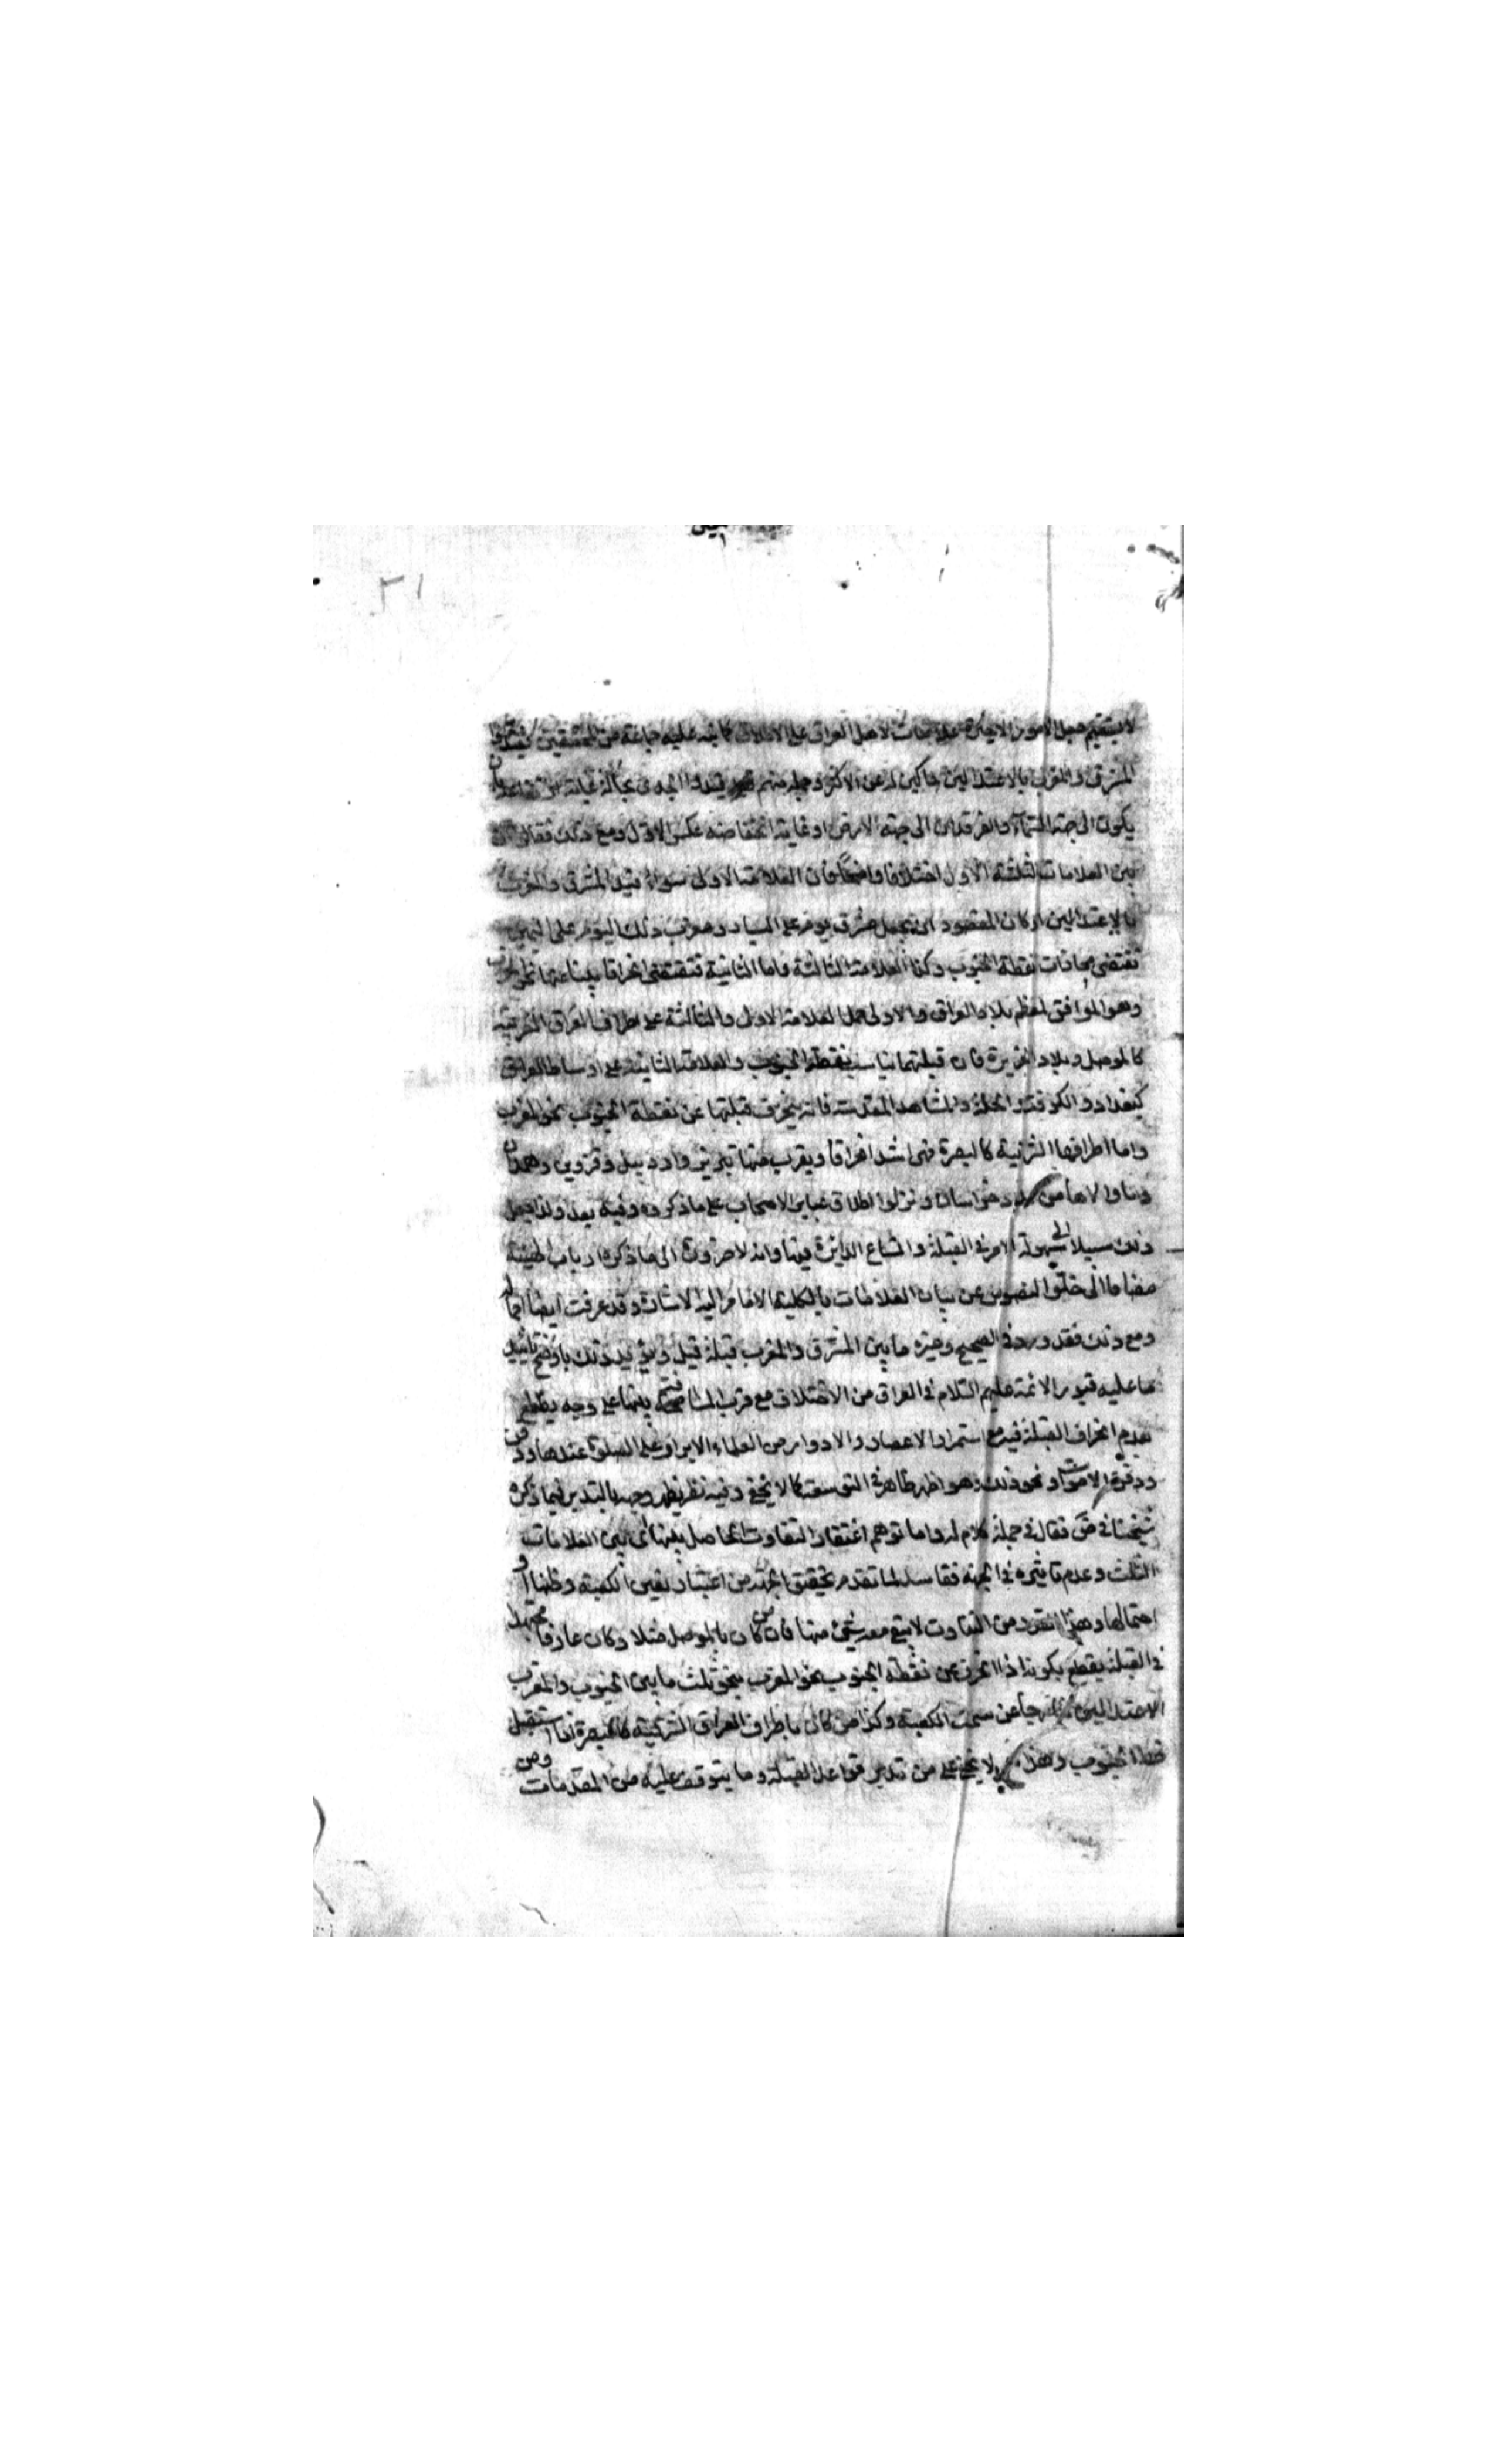 لا يستقيم جعل الامور الاخيرة علامات لاهل العراق على الاطلاق كما نبه عليه جماعة من المحققين فقيدوا
المشرق والمغرب بالاعتدالين حاكين له عن الاكثر وجملة منهم قيدوا الجدى بحالة غاية ارتفاعه بان
يكون الى جهة السماء والفرقدان الى جهة الارض او غاية انخفاضه عكس الاول ومع ذلك فقالوا ان
بين العلامات الثلثة الاول اختلافا واضحا فان العلامة الاولى سواء قيد المشرق والمغرب
بالاعتدالين ام كان المقصود ان يجعل مشرق يوم على اليسار ومغرب ذلك اليوم على اليمين
تقتضى محاذات نقطة الجنوب وكذا العلامة الثالثة واما الثانية فتقتضى انحرافا بينا عنها نحو المغرب
وهو الموافق لمعظم بلاد العراق والاولى حمل العلامة الاولى والثالثة على اطراف العراق الغربية
كالموصل وبلاد الجزيرة فان قبلتهما يناسب نقطة الجنوب والعلامة الثانية على اوساط العراق
كبغداد والكوفة والحلة والمشاهد المقدسة فانه ينحرف قبلتها عن نقطة الجنوب نحو المغرب
واما اطرافها الشرقية كالبصرة فهى اشد انحرافا ويقرب منها تبريز واردبيل وقزوين وهمدان
وما والاها من بلاد خراسان ونزلوا اطلاق عباير الاصحاب على ما ذكروه وفيه بعد ولذا جعل
ذلك سبيلا الى سهولة الامر فى القبلة واتساع الدايرة فيها وانه لا ضرورة الى ما ذكره ارباب الهيئة
مضافا الى خلو النصوص عن بيان العلامات بالكلية الا ما مر اليه الاشارة وقد عرفت ايضا
ومع ذلك فقد ورد فى الصحيح وغيره ما بين المشرق والمغرب قبلة قيل ويؤيد ذلك باوضح تاييد
ما عليه قبور الائمة عليهم السلام فى العراق من الاختلاف مع قرب المسافة بينها على وجه يقطع
بعدم انحراف القبلة فيه مع استمرار الاعصار والادوار من العلماء الابرار على الصلوة عندها
ودفن الاموات ونحو ذلك وهو اظهر ظاهر فى التوسعة كما لا يخفى وفيه نظر يظهر وجهه بالتدبر فيما ذكره
شيخنا فى ض فقال فى جملة كلام له واما توهم اغتفار التفاوت الحاصل بينها اى بين العلامات
الثلث وعدم تاثيره فى الجهة ففاسد لما تقدم فى تحقيق الجهة من اعتبار تعين الكعبة وظنها او
احتمالها وهذا القدر من التفاوت لا يبقى معه شئ منها فان من كان بالموصل مثلا وكان عارفا مجتهدا
فى القبلة يقطع بكونه اذا انحرف عن نقطة الجنوب نحو المغرب بنحو ثلث ما بين الجنوب والمغرب
الاعتداليين خارجا عن سمت الكعبة وكذا من كان باطراف العراق الشرقية كالبصرة اذا استقبل
نقطة الجنوب وهذا لا يخفى على من تدبر قواعد القبلة وما يتوقف عليه من المقدمات ومن